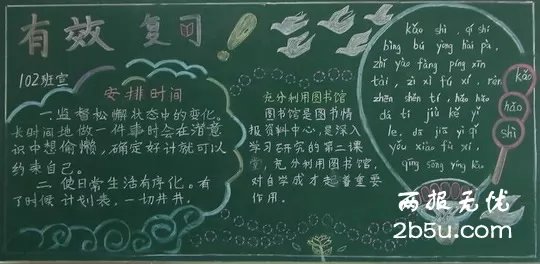 有效 复习
102班宣
安排时间
一.监督松懈状态中的变化。
长时间地做一件事时会在潜意
识中想偷懒,确定好计就可以
约束自己。
二.使日常生活有序化。有
了时候计划表,一切井井.
充分利用图书馆
图书馆是图书情
报资料中心,是深入
学习研究的第二课
堂,充分利用图书馆,
对自学成才起着重要
作用.
kǎo shì, qí shí
bìng bú yòng hài pà,
zhǐ yào fàng píng xīn
tài, zì xǐ fù xí, rèn
zhēn shěn tí, hǎo hǎo
dá tí jiù kě yǐ
le, dà jiā yì qǐ
yǒu xiào fù xí,
qīng sōng yíng kǎo
kǎo
hǎo
shì
两报无忧
2b5u.com